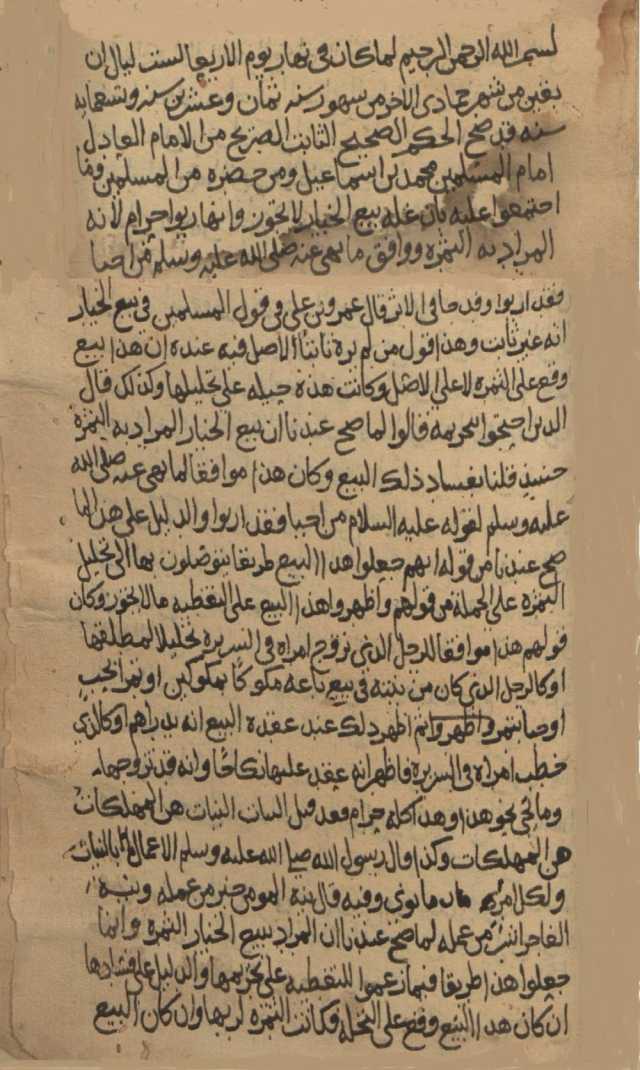 لسم الله الرحمن الرحيم لما كان في نهار يوم الاربعا لست ليال ان
بقين من شهر جمادى الاخر من شهور سنه ثمان وعشرين سنه وتسعمايه
سنه قد صح الحكم الصحيح الثابت الصريح من الامام العادل
امام المسلمين محمد بن اسماعيل ومن حضره من المسلمين وما
اجتمعوا عليه بان غله بيع الخيار لا تجوز وانها ربوا حرام لانه
المراد به الثمره ووافق ما نهى عنه صلى الله عليه وسلم من احبا
فقد اربوا وقد جا في الاثر قال عمرو بن علي في قول المسلمين في بيع الخيار
انه غير ثابت وهذا قول من لم يره ثابتا الاصل فيه عنده ان هذا بيع
وقع على الثمره لا على الاصل وكانت هذه حيله على تحليلها وكذلك قال
الدين احتجوا بتحريمه قالوا لما صح عندنا ان بيع الخيار المراد به الثمرة
حنيىذ قلنا بفساد ذلك البيع وكان هذا موافقا لما نهى عنه صلى الله
عليه وسلم لقوله عليه السلام من احبا فقد اربوا والدليل على هذا لما
صح عندنا من قوله انهم جعلوا هذا البيع طريقا يتوصلون بها الى تحليل
الثمره على الجملة من قولهم واظهروا هذا البيع على التغطيه مالا يجوز وكان
قولهم هذا موافقا للرجل الذي تزوج امراه في السريرة تحليلا لمطلقها
او كالرجل الذي كان من نيته في بيع باعه مكوكا بمكوكين او تمرا بحب
او حبا بتمر واظهروا اظهر ذلك عند عقدة البيع انه بدراهم او كالذي
خطب امراة في السريرة فاظهر انه عقد عليها نكاحا وانه قد تزوجها
وما يجي نحو هذا وهذا كله حرام فقد قيل النيات النيات هن المهلكات
هن المهلكات وكذا قال رسول الله صلى الله عليه وسلم الاعمال بالنيات
ولكل امريء ما نوى وفيه قال نية المومن خير من عمله ونية
الفاجر اشر من عمله لما صح عندنا ان المراد ببيع الخيار الثمره وانما
جعلوا هذا طريقا فيما زعموا للتغطيه على تحريمها والدليل على فسادها
ان كان هذا البيع وقع على النخله وكانت الثمرة لربها وان كان البيع